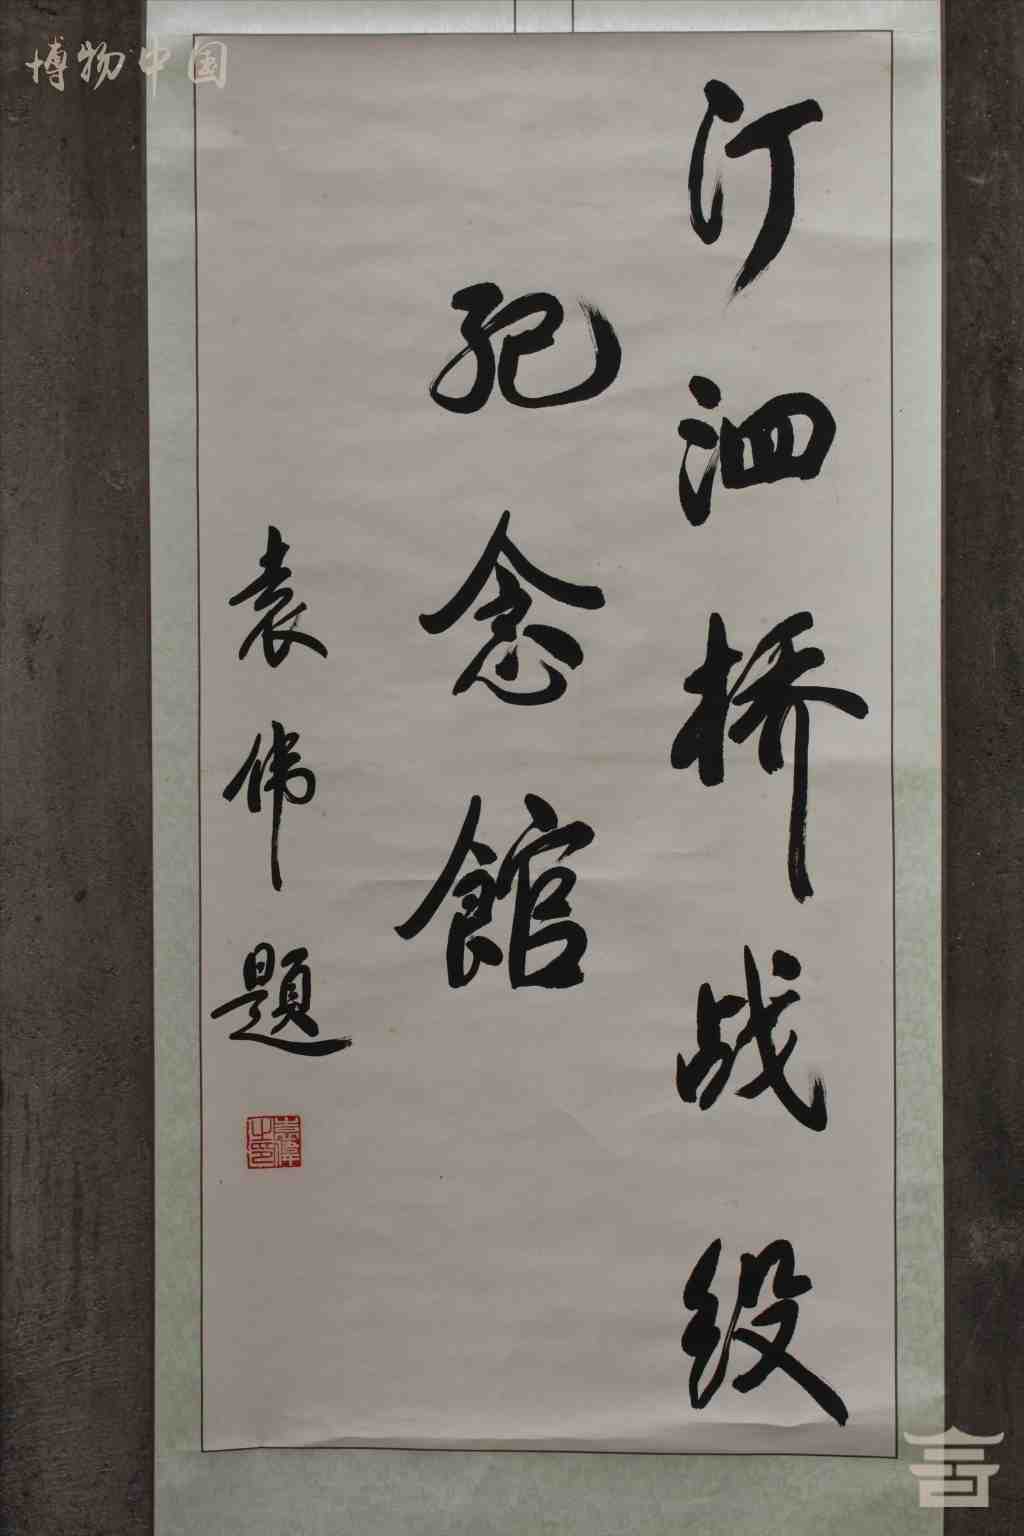 汀泗桥战役
纪念館
袁伟题
袁偉之印
博物中国